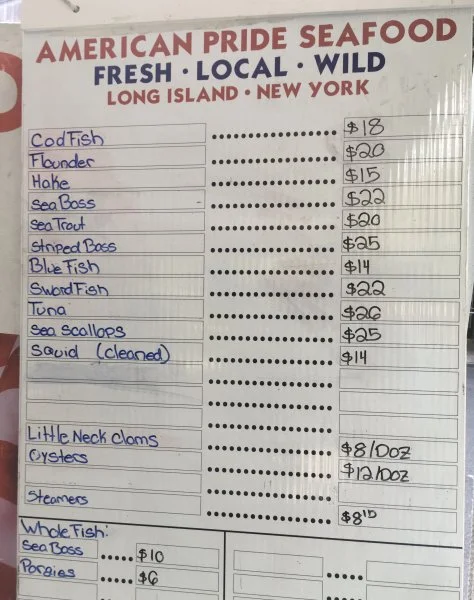 AMERICAN PRIDE SEAFOOD
FRESH · LOCAL · WILD
LONG ISLAND · NEW YORK
CodFish $18
Flounder $20
Hake $15
Sea Bass $22
Sea Trout $20
Striped Bass $25
Blue Fish $14
Sword Fish $22
Tuna $26
Sea Scallops $25
Squid (cleaned) $14
Little Neck Clams $8/Doz
Oysters $12/Doz
Steamers $8 lb
Whole Fish:
Sea Bass $10
Porgies $6